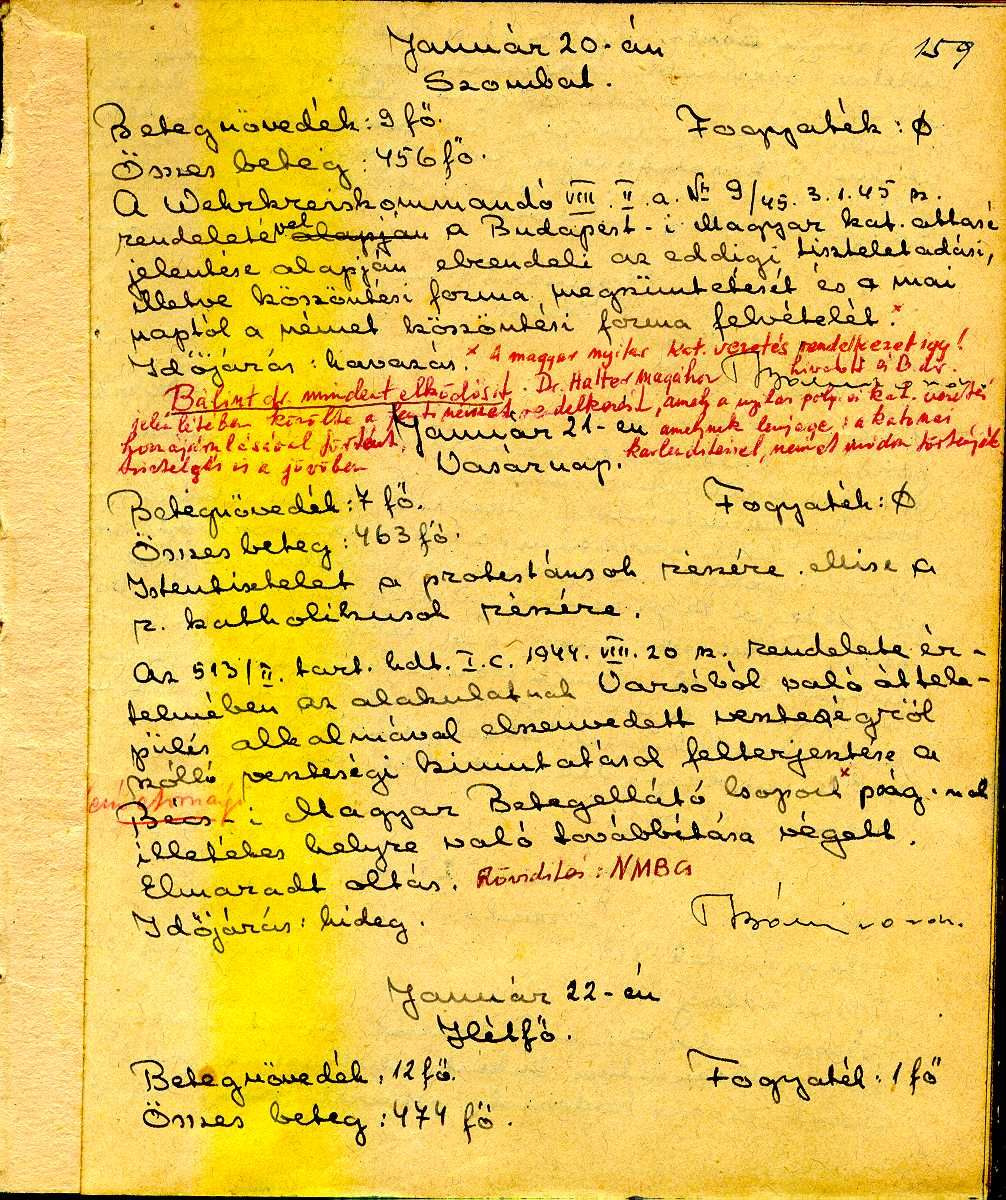 159
Január 20-án
Szombat.
Betegnövedék: 9 fő. Fogyaték: Ø
Összes beteg: 456 fő.
A Wehrkreiskommandó VIII. II. a. Nr 9/45. 3.1.45 sz.
rendeletével alapján a Budapest-i Magyar kat. attasé
jelentése alapján elrendeli az eddigi tiszteletadási,
illetve köszöntési forma megszüntetését és a mai
naptól a német köszöntési forma felvételét. x
Időjárás: havazás. x A magyar nyilas kat. vezetés rendelkezet így!
Bálint dr. mindent elködösít. Dr. Halter magához hivatott és B. dr.
jelenlétében közölte a fenti német rendelkezést, amely a nyilas polg. és kat. vezetés
hozzájárulásával történt, amelynek lényege: a katonai
tisztelgés is a jövőben karlendítéssel, német módon történjék
Január 21-én
Vasárnap.
Betegnövedék: 7 fő. Fogyaték: Ø
Összes beteg: 463 fő.
Istentisztelet a protestánsok részére. Mise a
r. katholikusok részére.
Az 513/II. tart. hdt. I.c. 1944. VIII. 20 sz. rendelete ér-
telmében az alakulatnak Varsóból való áttele-
pülés alkalmával elszenvedett veszteségről
szóló veszteségi kimutatások felterjesztése a
Bécs-i Magyar Betegellátó Csoport x pság.-nak
illetékes helyre való továbbítása végett.
Elmaradt oltás. Rövidítés: NMBCs
Időjárás: hideg.
Január 22-én
Hétfő.
Betegnövedék: 12 fő. Fogyaték: 1 fő
Összes beteg: 474 fő.